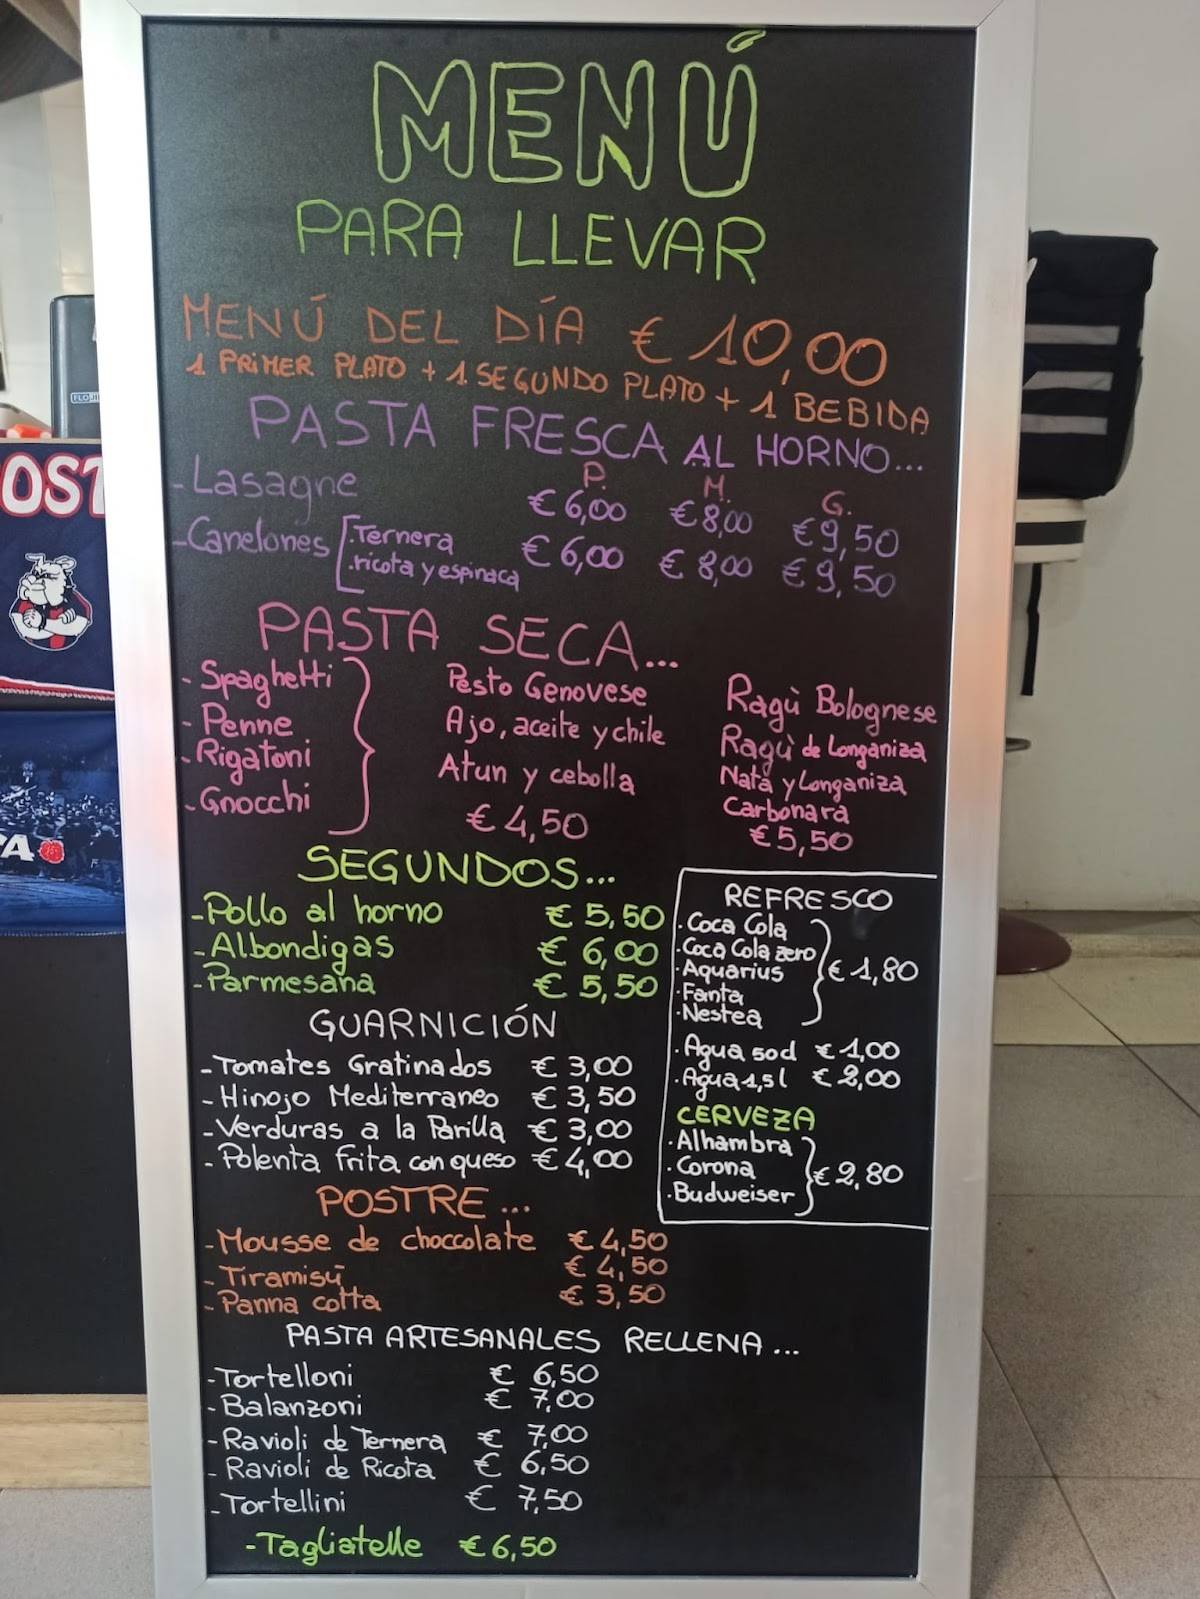 MENÚ
PARA LLEVAR
MENÚ DEL DÍA € 10,00
1 PRIMER PLATO + 1 SEGUNDO PLATO + 1 BEBIDA
PASTA FRESCA AL HORNO...
P. M. G.
- Lasagne € 6,00 € 8,00 € 9,50
- Canelones [ . Ternera € 6,00 € 8,00 € 9,50
. ricota y espinaca
PASTA SECA...
- Spaghetti
- Penne
- Rigatoni
- Gnocchi
Pesto Genovese
Ajo, aceite y chile
Atun y cebolla
€ 4,50
Ragù Bolognese
Ragù de Longaniza
Nata y Longaniza
Carbonara
€ 5,50
SEGUNDOS...
- Pollo al horno € 5,50
- Albondigas € 6,00
- Parmesana € 5,50
GUARNICIÓN
- Tomates Gratinados € 3,00
- Hinojo Mediterraneo € 3,50
- Verduras a la Parilla € 3,00
- Polenta frita con queso € 4,00
REFRESCO
. Coca Cola
. Coca Cola zero
. Aquarius
. Fanta
. Nestea
€ 1,80
. Agua 50cl € 1,00
. Agua 1,5 l € 2,00
CERVEZA
. Alhambra
. Corona
. Budweiser
€ 2,80
POSTRE...
- Mousse de choccolate € 4,50
- Tiramisù € 4,50
- Panna cotta € 3,50
PASTA ARTESANALES RELLENA...
- Tortelloni € 6,50
- Balanzoni € 7,00
- Ravioli de Ternera € 7,00
- Ravioli de Ricota € 6,50
- Tortellini € 7,50
- Tagliatelle € 6,50